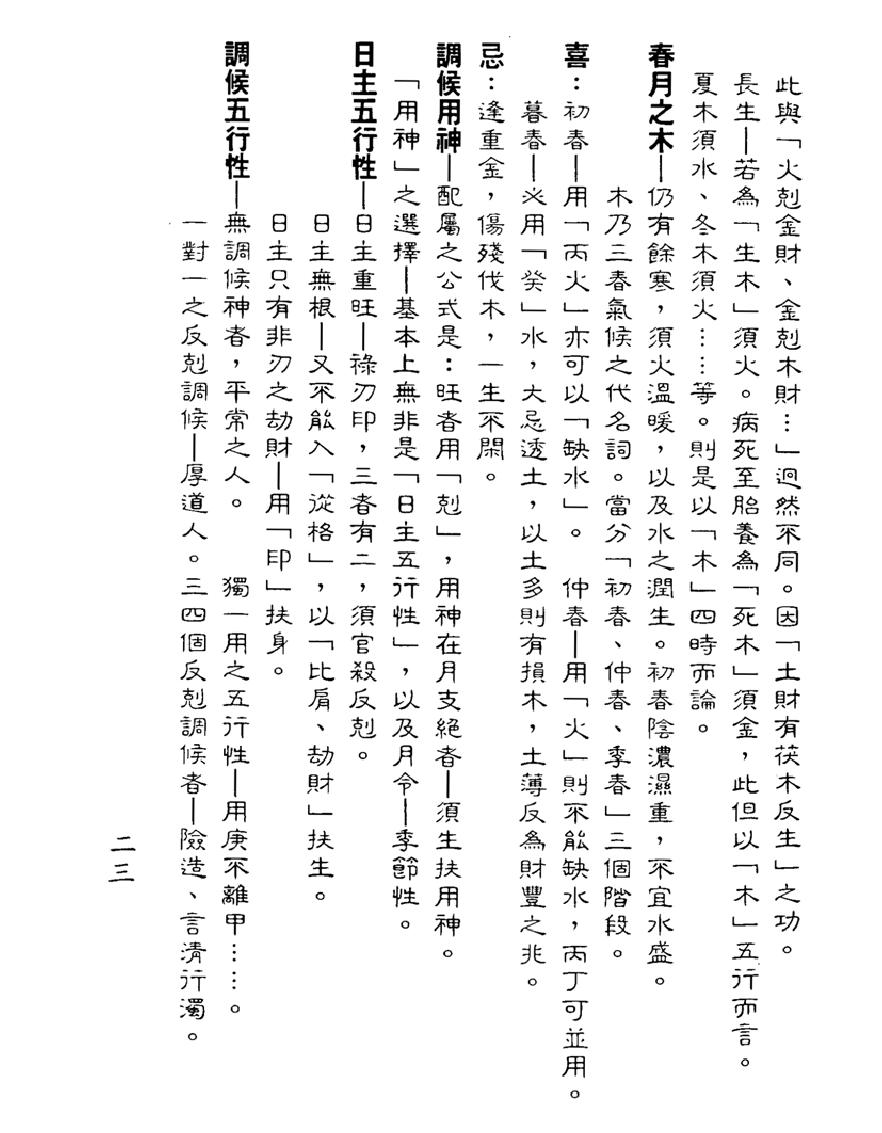 此與「火剋金財、金剋木財…」迥然不同。因「土財有茯木反生」之功。
長生—若為「生木」須火。病死至胎養為「死木」須金，此但以「木」五行而言。
夏木須水、冬木須火……等。則是以「木」四時而論。
春月之木—仍有餘寒，須火溫暖，以及水之潤生。初春陰濃濕重，不宜水盛。
木乃三春氣候之代名詞。當分「初春、仲春、季春」三個階段。
喜：初春—用「丙火」亦可以「缺水」。　仲春—用「火」則不能缺水，丙丁可並用。
暮春—必用「癸」水，大忌透土，以土多則有損木，土薄反為財豐之兆。
忌：逢重金，傷殘伐木，一生不閑。
調候用神—配屬之公式是：旺者用「剋」，用神在月支絕者—須生扶用神。
「用神」之選擇—基本上無非是「日主五行性」，以及月令—季節性。
日主五行性—日主重旺—祿刃印，三者有二，須官殺反剋。
日主無根—又不能入「從格」，以「比肩、劫財」扶生。
日主只有非刃之劫財—用「印」扶身。
調候五行性—無調候神者，平常之人。　獨一用之五行性—用庚不離甲……。
一對一之反剋調候—厚道人。三四個反剋調候者—險造、言清行濁。
二三